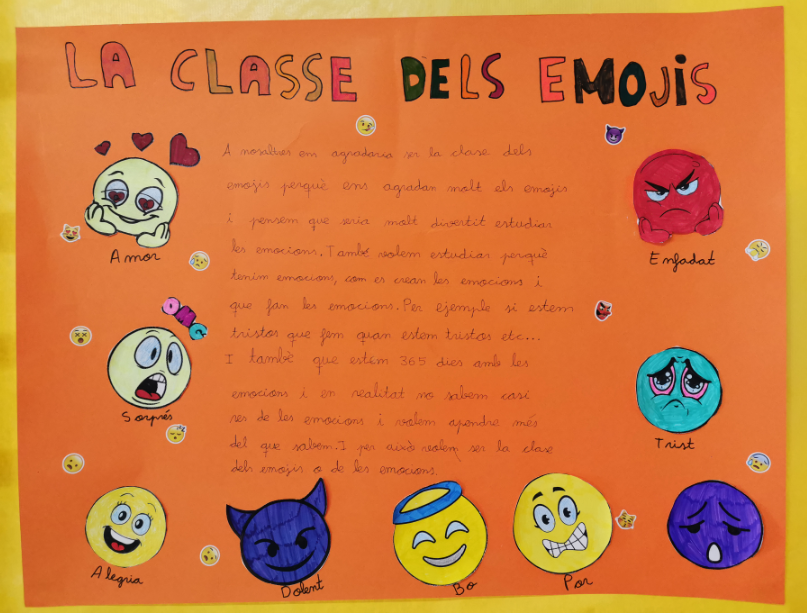 LA CLASSE DELS EMOJIS
A nosaltres em agradaria ser la clase dels
emojis perquè ens agradan molt els emojis
i pensem que seria molt divertit estudiar
les emocions. També volem estudiar perquè
tenim emocions, com es crean les emocions i
que fan les emocions. Per ejemple si estem
tristos que fem quan estem tristos etc...
I també que estem 365 dies amb les
emocions i en realitat no sabem casi
res de les emocions i volem apendre més
del que sabem. I per això volem ser la clase
dels emojis o de les emocions.
Amor
Enfadat
OMG
Sorprés
Trist
Alegria
Dolent
Bo
Por